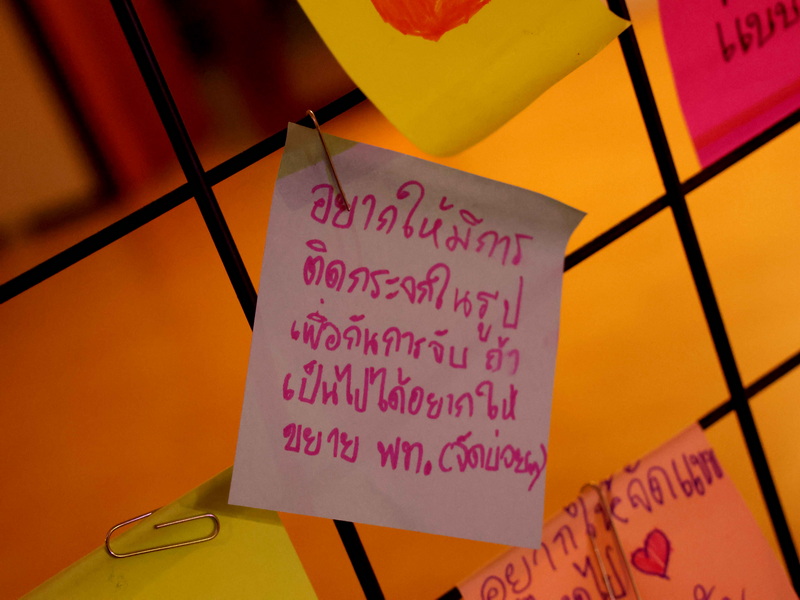 แบบ
อยากให้มีการ
ติดกระจกในรูป
เพื่อกันการจับ ถ้า
เป็นไปได้อยากให้
ขยาย พท. (จัดบ่อยๆ)
อยากให้จัดแบบ